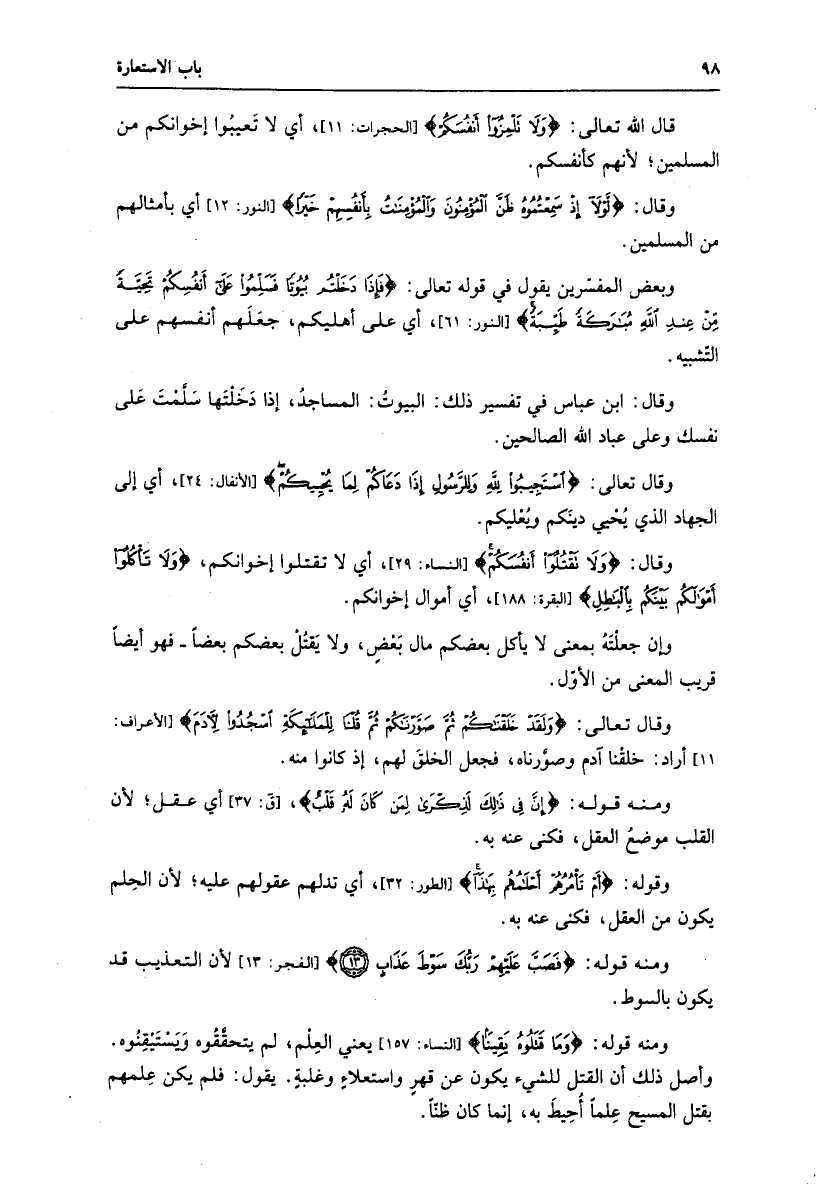 ٩٨ باب الاستعارة
قال الله تعالى: ﴿وَلَا نَلْمِزُوٓا۟ أَنفُسَكُمْ﴾ [الحجرات: ١١]، أي لا تَعيبُوا إخوانكم من
المسلمين؛ لأنهم كأنفسكم.
وقال: ﴿لَّوْلَآ إِذْ سَمِعْتُمُوهُ ظَنَّ ٱلْمُؤْمِنُونَ وَٱلْمُؤْمِنَٰتُ بِأَنفُسِهِمْ خَيْرًا﴾ [النور: ١٢] أي بأمثالهم
من المسلمين.
وبعض المفسّرين يقول في قوله تعالى: ﴿فَإِذَا دَخَلْتُم بُيُوتًا فَسَلِّمُوا۟ عَلَىٰٓ أَنفُسِكُمْ تَحِيَّةً
مِّنْ عِندِ ٱللَّهِ مُبَٰرَكَةً طَيِّبَةً﴾ [النور: ٦١]، أي على أهليكم، جعَلَهم أنفسهم على
التّشبيه.
وقال: ابن عباس في تفسير ذلك: البيوتُ: المساجدُ، إذا دَخَلْتَها سَلَّمْتَ عَلى
نفسك وعلى عباد الله الصالحين.
وقال تعالى: ﴿ٱسْتَجِيبُوا۟ لِلَّهِ وَلِلرَّسُولِ إِذَا دَعَاكُمْ لِمَا يُحْيِيكُمْ﴾ [الأنفال: ٢٤]، أي إلى
الجهاد الذي يُحْيي دينَكم ويُعْليكم.
وقال: ﴿وَلَا نَقْتُلُوٓا۟ أَنفُسَكُمْ﴾ [النساء: ٢٩]، أي لا تقتلوا إخوانكم، ﴿وَلَا تَأْكُلُوٓا۟
أَمْوَٰلَكُم بَيْنَكُم بِٱلْبَٰطِلِ﴾ [البقرة: ١٨٨]، أي أموال إخوانكم.
وإن جعلْتَهُ بمعنى لا يأكل بعضكم مال بَعْضٍ، ولا يَقتُلْ بعضكم بعضاً ـ فهو أيضاً
قريب المعنى من الأوّل.
وقال تعالى: ﴿وَلَقَدْ خَلَقْنَٰكُمْ ثُمَّ صَوَّرْنَٰكُمْ ثُمَّ قُلْنَا لِلْمَلَٰٓئِكَةِ ٱسْجُدُوا۟ لِـَٔادَمَ﴾ [الأعراف:
١١] أراد: خلقْنا آدم وصوَّرناه، فجعل الخلقَ لهم، إذ كانوا منه.
ومنه قوله: ﴿إِنَّ فِى ذَٰلِكَ لَذِكْرَىٰ لِمَن كَانَ لَهُۥ قَلْبٌ﴾، [ق: ٣٧] أي عقل؛ لأن
القلب موضعُ العقل، فكنى عنه به.
وقوله: ﴿أَمْ تَأْمُرُهُمْ أَحْلَٰمُهُم بِهَٰذَآ﴾ [الطور: ٣٢]، أي تدلهم عقولهم عليه؛ لأن الحِلم
يكون من العقل، فكنى عنه به.
ومنه قوله: ﴿فَصَبَّ عَلَيْهِمْ رَبُّكَ سَوْطَ عَذَابٍ ١٣﴾ [الفجر: ١٣] لأن التعذيب قد
يكون بالسوط.
ومنه قوله: ﴿وَمَا قَتَلُوهُ يَقِينًۢا﴾ [النساء: ١٥٧] يعني العِلْم، لم يتحقَّقوه وَيَسْتَيْقِنُوه.
وأصل ذلك أن القتل للشيء يكون عن قهرٍ واستعلاءٍ وغلبةٍ. يقول: فلم يكن عِلمهم
بقتل المسيح عِلماً أُحِيطَ به، إنما كان ظنّاً.